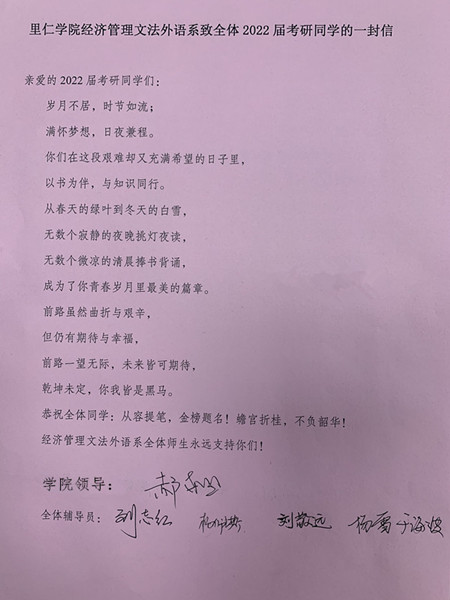 里仁学院经济管理文法外语系致全体 2022 届考研同学的一封信
亲爱的 2022 届考研同学们：
岁月不居，时节如流；
满怀梦想，日夜兼程。
你们在这段艰难却又充满希望的日子里，
以书为伴，与知识同行。
从春天的绿叶到冬天的白雪，
无数个寂静的夜晚挑灯夜读，
无数个微凉的清晨捧书背诵，
成为了你青春岁月里最美的篇章。
前路虽然曲折与艰辛，
但仍有期待与幸福，
前路一望无际，未来皆可期待，
乾坤未定，你我皆是黑马。
恭祝全体同学：从容提笔，金榜题名！蟾宫折桂，不负韶华！
经济管理文法外语系全体师生永远支持你们！
学院领导：
全体辅导员： 刘志红 刘敬远 杨雪 于海波